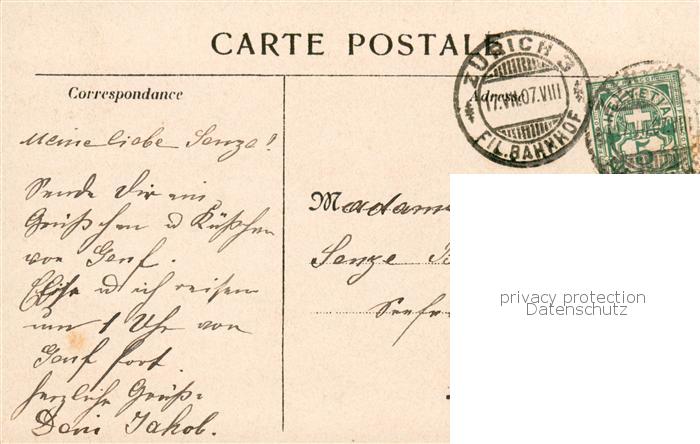 CARTE POSTALE
Correspondance
Adresse
ZÜRICH 3
17.VIII.07.VIII
FIL. BAHNHOF
HELVETIA
Meine liebe Senze!
Sende Dir ein
Grüßchen u Küßchen
von Genf.
u ich reisen
um 1 Uhr von
Genf fort.
herzliche Grüße
Dein Jakob.
Madame
Senze
privacy protection
Datenschutz